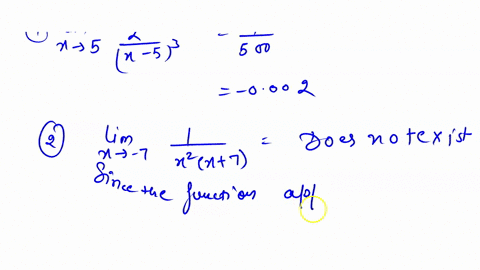 x→5 2/(x-5)³
500
= -0.002
② lim x→-7 1/x²(x+7) = Does not exist
Since the function app